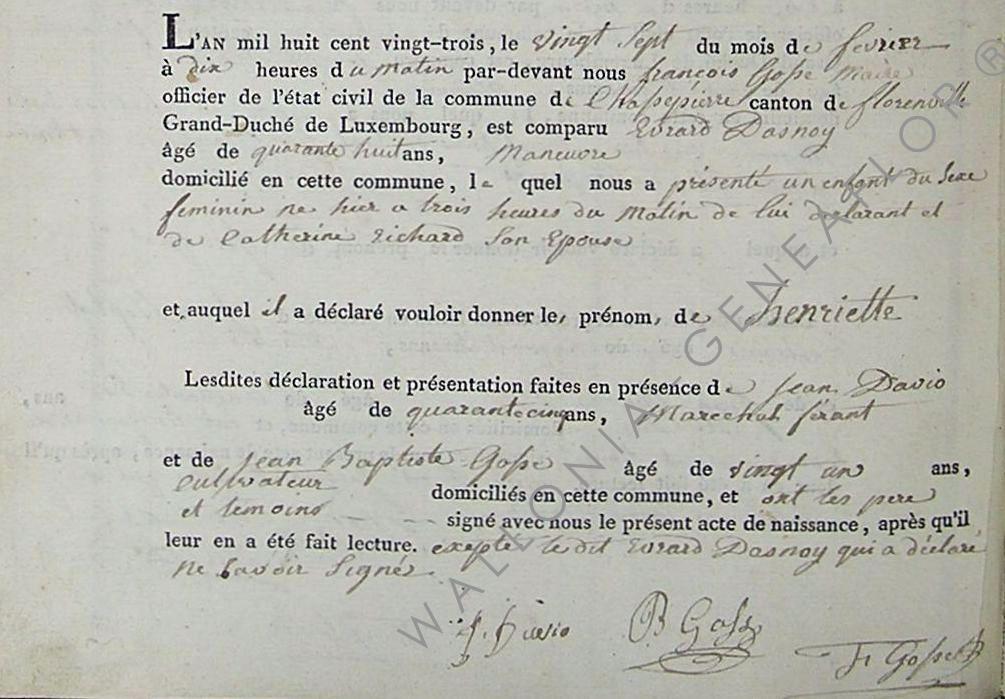 L'AN mil huit cent vingt-trois, le vingt Sept du mois de fevrier
à dix heures du Matin par-devant nous françois Gosse Maire
officier de l'état civil de la commune de Chassepierre canton de florenville
Grand-Duché de Luxembourg, est comparu Evrard Dasnoy
âgé de quarante huit ans, Maneuvre
domicilié en cette commune, le quel nous a présenté un enfant du Sexe
feminin ne hier a trois heures du Matin de lui declarant et
de Catherine Richard Son Epouse
et auquel il a déclaré vouloir donner le, prénom, de henriette
Lesdites déclaration et présentation faites en présence de Jean Davio
âgé de quarante cinq ans, Marechal ferant
et de Jean Baptiste Gosse âgé de vingt un ans,
cultivateur domiciliés en cette commune, et ont les pere
et temoins signé avec nous le présent acte de naissance, après qu'il
leur en a été fait lecture. excepté le dit Evrard Dasnoy qui a déclaré
ne Savoir Signér.
J. Davio B Gosse F Gosse
WALLONIA GENEALOR ®